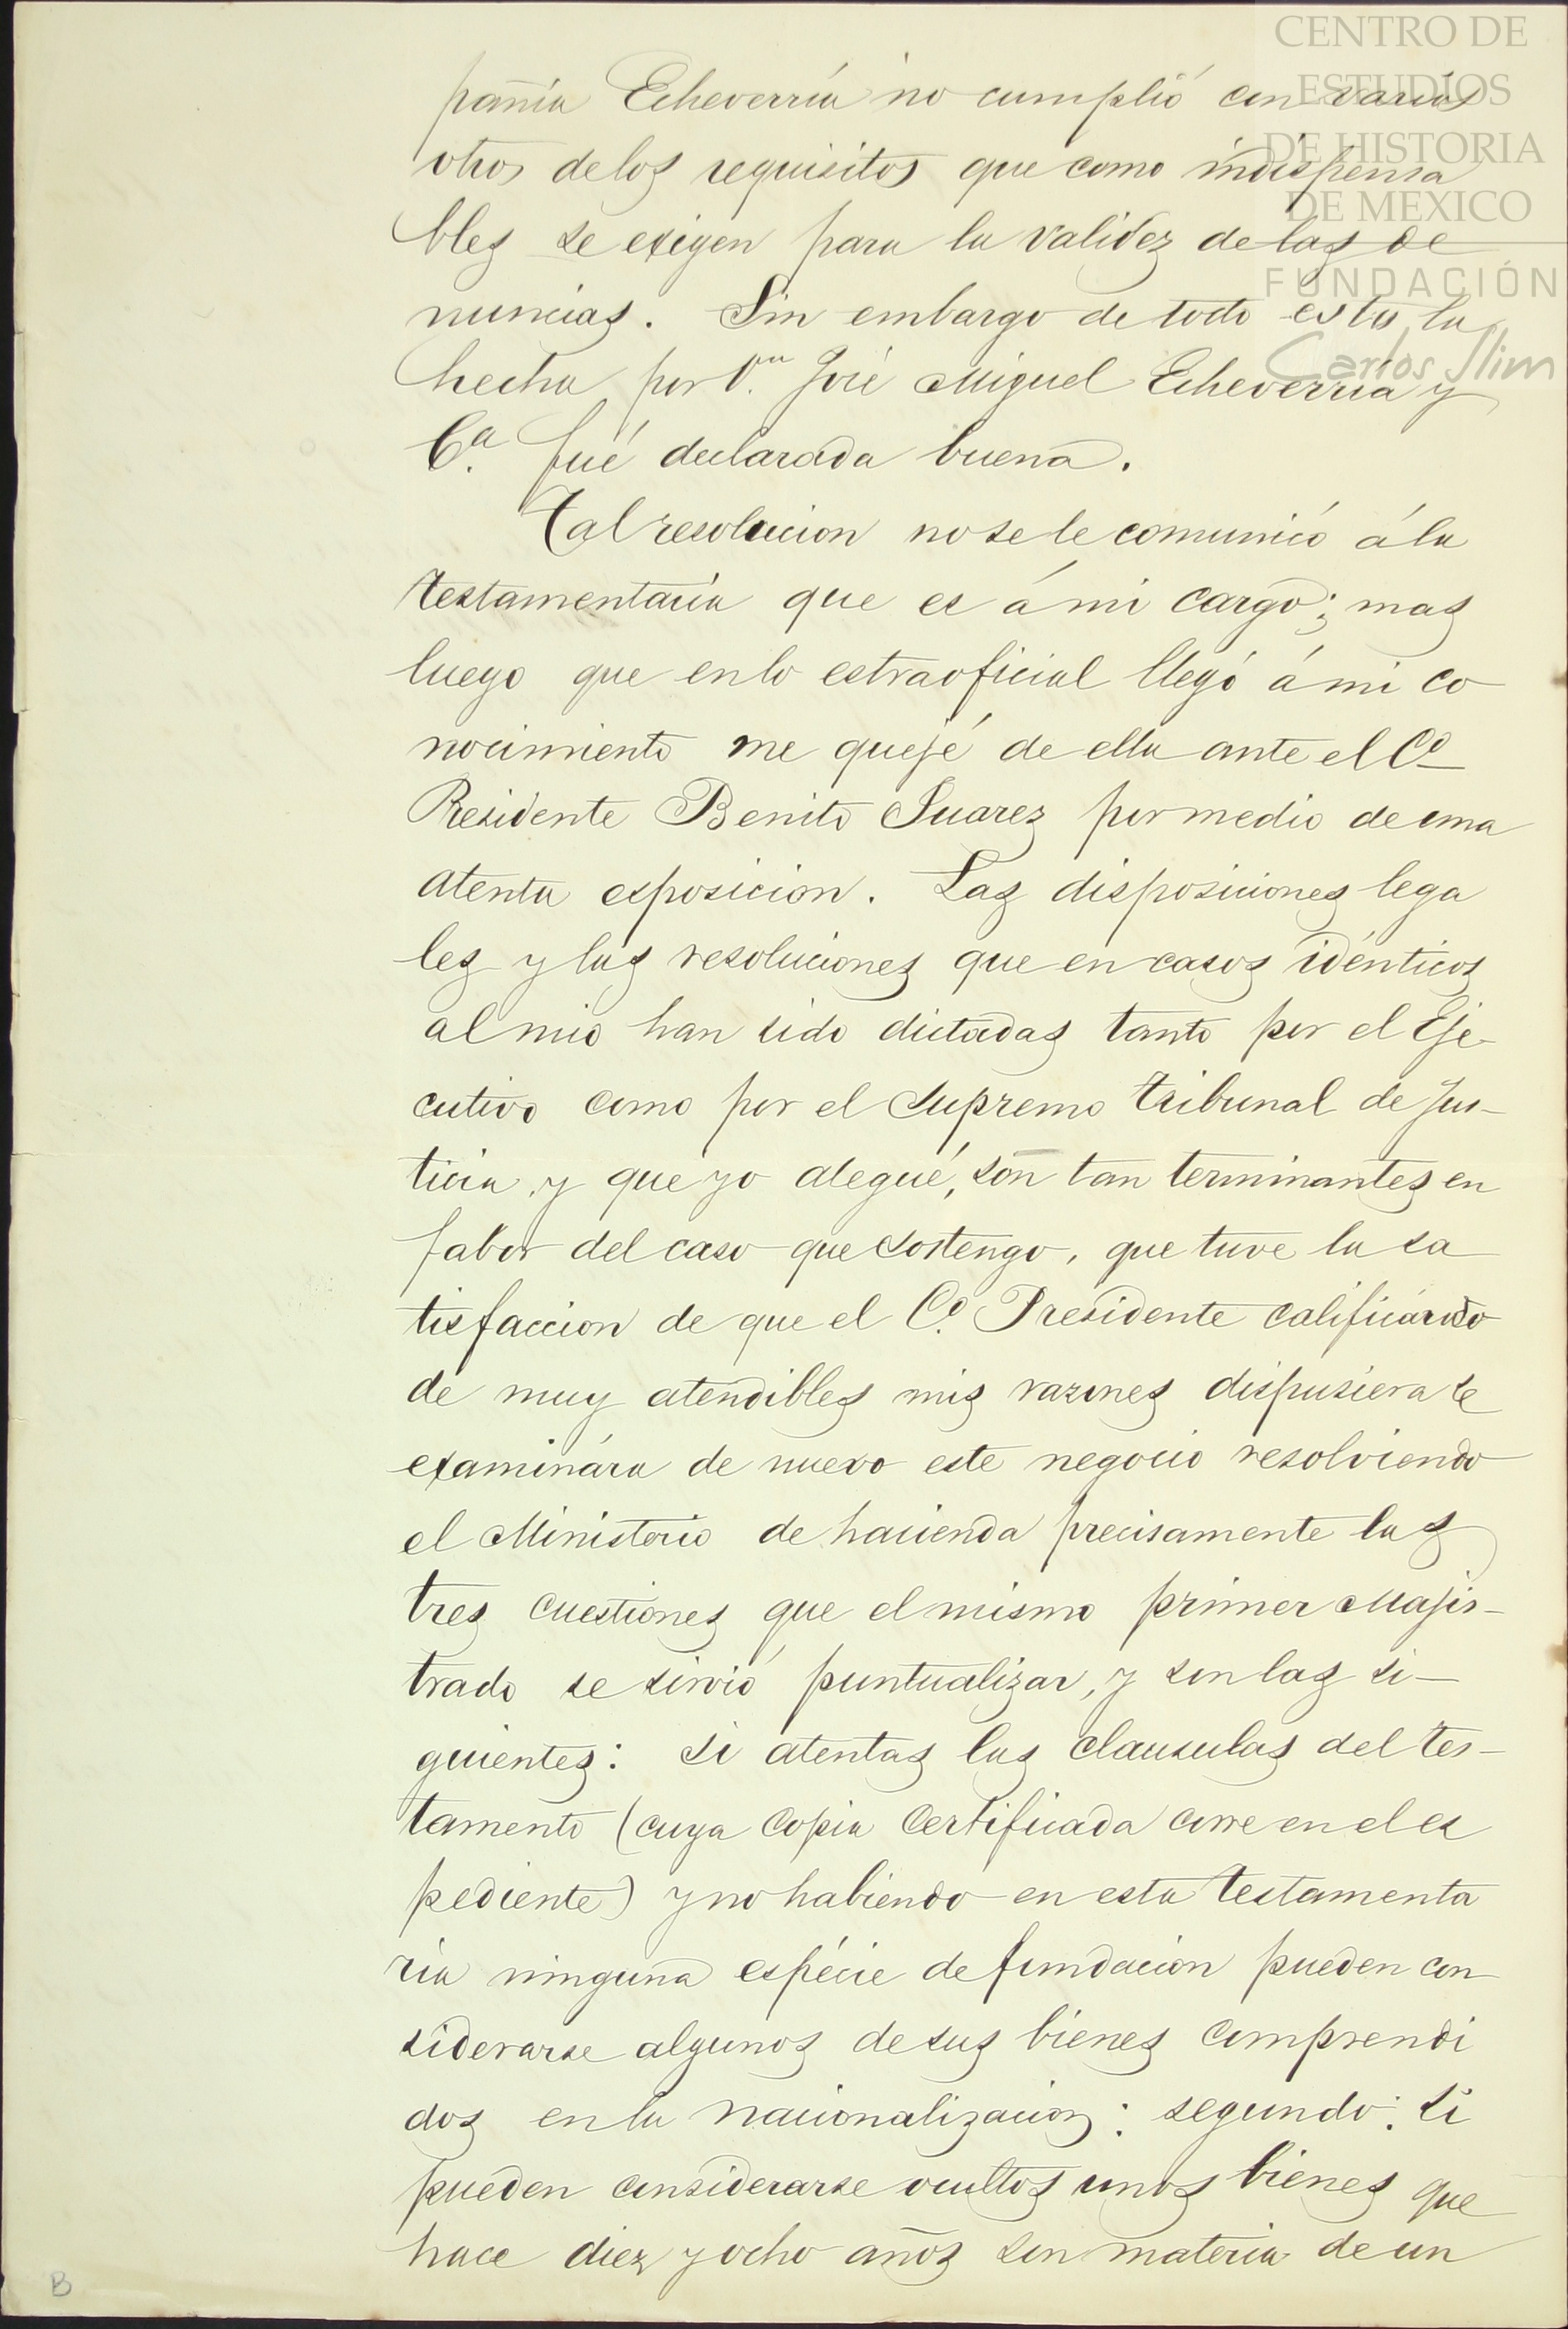 CENTRO DE
ESTUDIOS
DE HISTORIA
DE MEXICO
FUNDACIÓN
Carlos Slim
pañía Echeverría no cumplió con varios
otros de los requisitos que como indispensa
bles se exigen para la validez de las de
nuncias. Sin embargo de todo esto, la
hecha por D.n José Miguel Echeverría y
C.a fué declarada buena.
Tal resolucion no se le comunicó á la
testamentaría que es á mi cargo; mas
luego que en lo estraoficial llegó á mi co
nocimiento me quejé de ella ante el C.o
Presidente Benito Juarez por medio de una
atenta esposicion. Las disposiciones lega
les y las resoluciones que en casos idénticos
al mio han sido dictadas tanto por el Eje-
cutivo como por el Supremo tribunal de Jus-
ticia, y que yo alegué, son tan terminantes en
fabor del caso que sostengo, que tuve la sa
tisfaccion de que el C.o Presidente calificando
de muy atendibles mis razones dispusiera se
examinára de nuevo este negocio resolviendo
el Ministerio de hacienda precisamente las
tres cuestiones que el mismo primer Majis-
trado se sirvió puntualizar, y son las si-
guientes: Si atentas las clausulas del tes-
tamento (cuya copia certificada corre en el es
pediente) y no habiendo en esta testamenta
ria ninguna espécie de fundacion pueden con
siderarse algunos de sus bienes comprendi
dos en la nacionalizacion: segundo: Si
pueden considerarse ocultos unos bienes que
hace diez y ocho años son materia de un
B